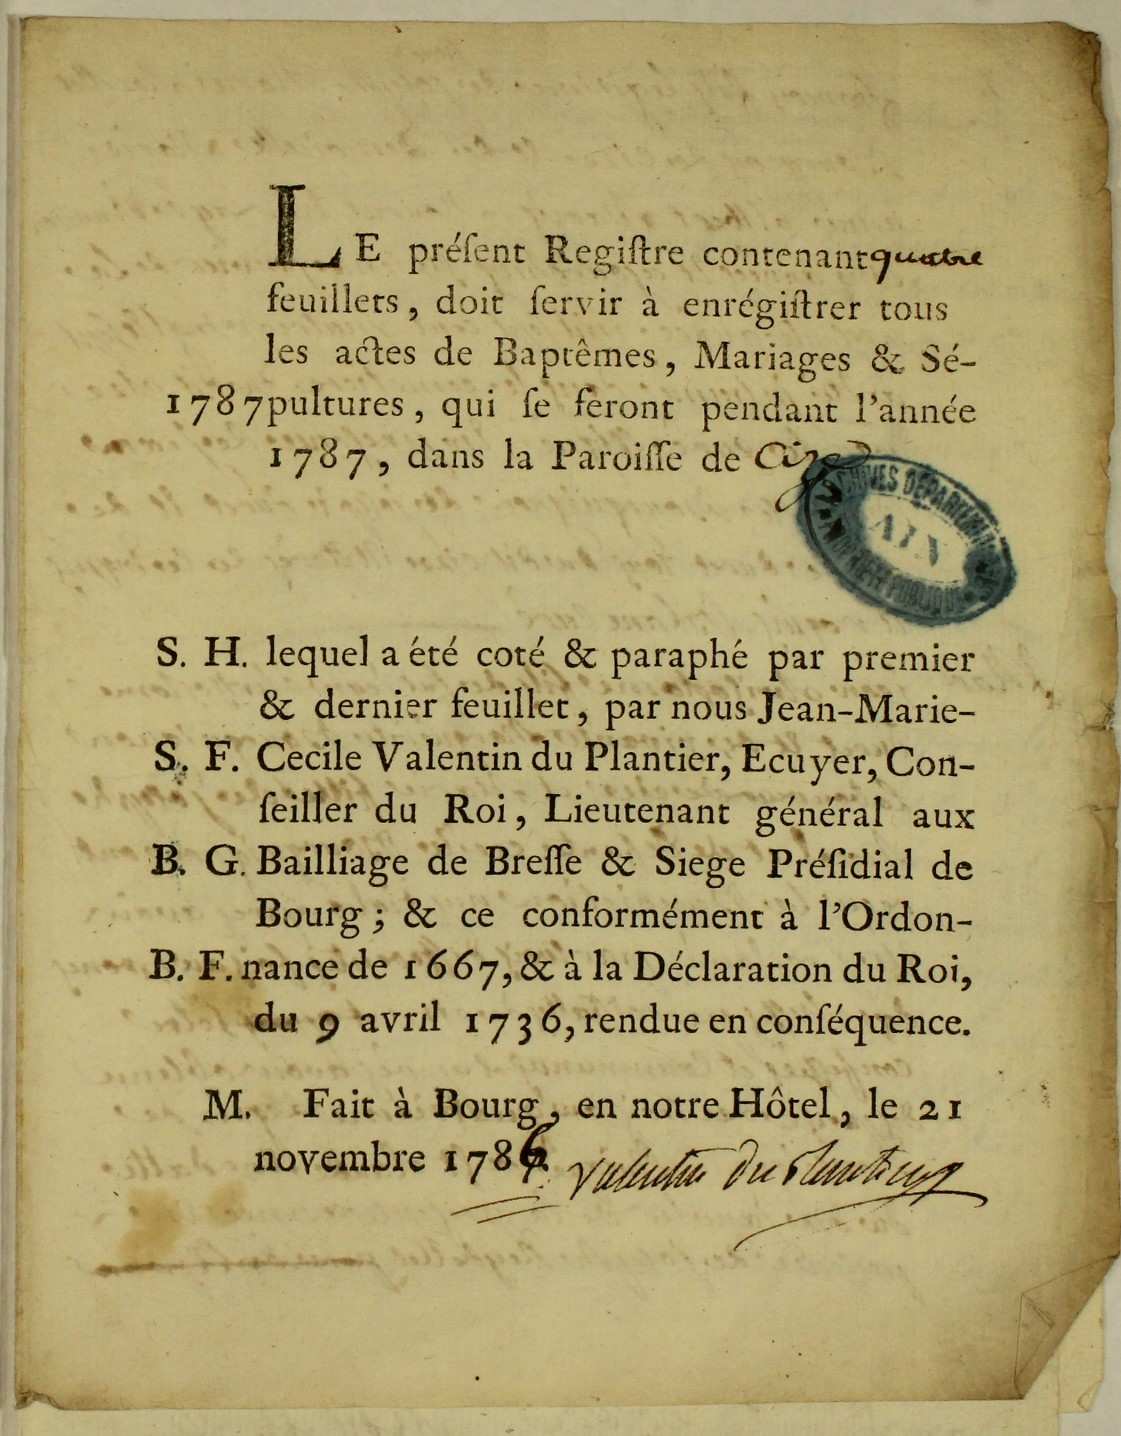 LE préſent Regiſtre contenant quatre
feuillets, doit ſervir à enrégiſtrer tous
les actes de Baptêmes, Mariages & Sé-
1787 pultures, qui ſe feront pendant l'année
1787, dans la Paroiſſe de
ARCHIVES DÉPARTEMENTALES
AIN
PROPRIÉTÉ PUBLIQUE
S. H. lequel a été coté & paraphé par premier
& dernier feuillet, par nous Jean-Marie-
S. F. Cecile Valentin du Plantier, Ecuyer, Con-
ſeiller du Roi, Lieutenant général aux
B. G. Bailliage de Breſſe & Siege Préſidial de
Bourg; & ce conformément à l'Ordon-
B. F. nance de 1667, & à la Déclaration du Roi,
du 9 avril 1736, rendue en conſéquence.
M. Fait à Bourg, en notre Hôtel, le 21
novembre 1786. Valentin du Plantier